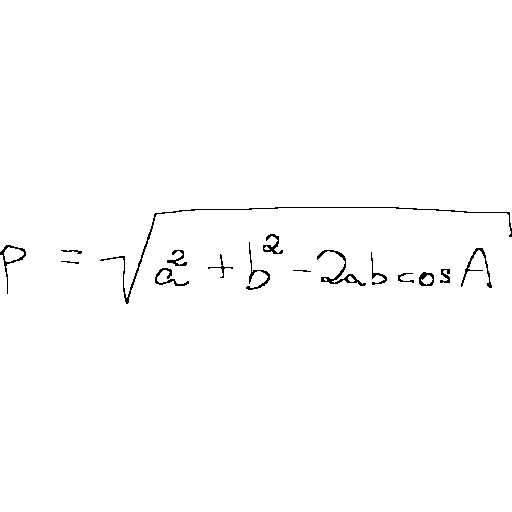 p = \sqrt{a^2 + b^2 - 2ab \cos A}